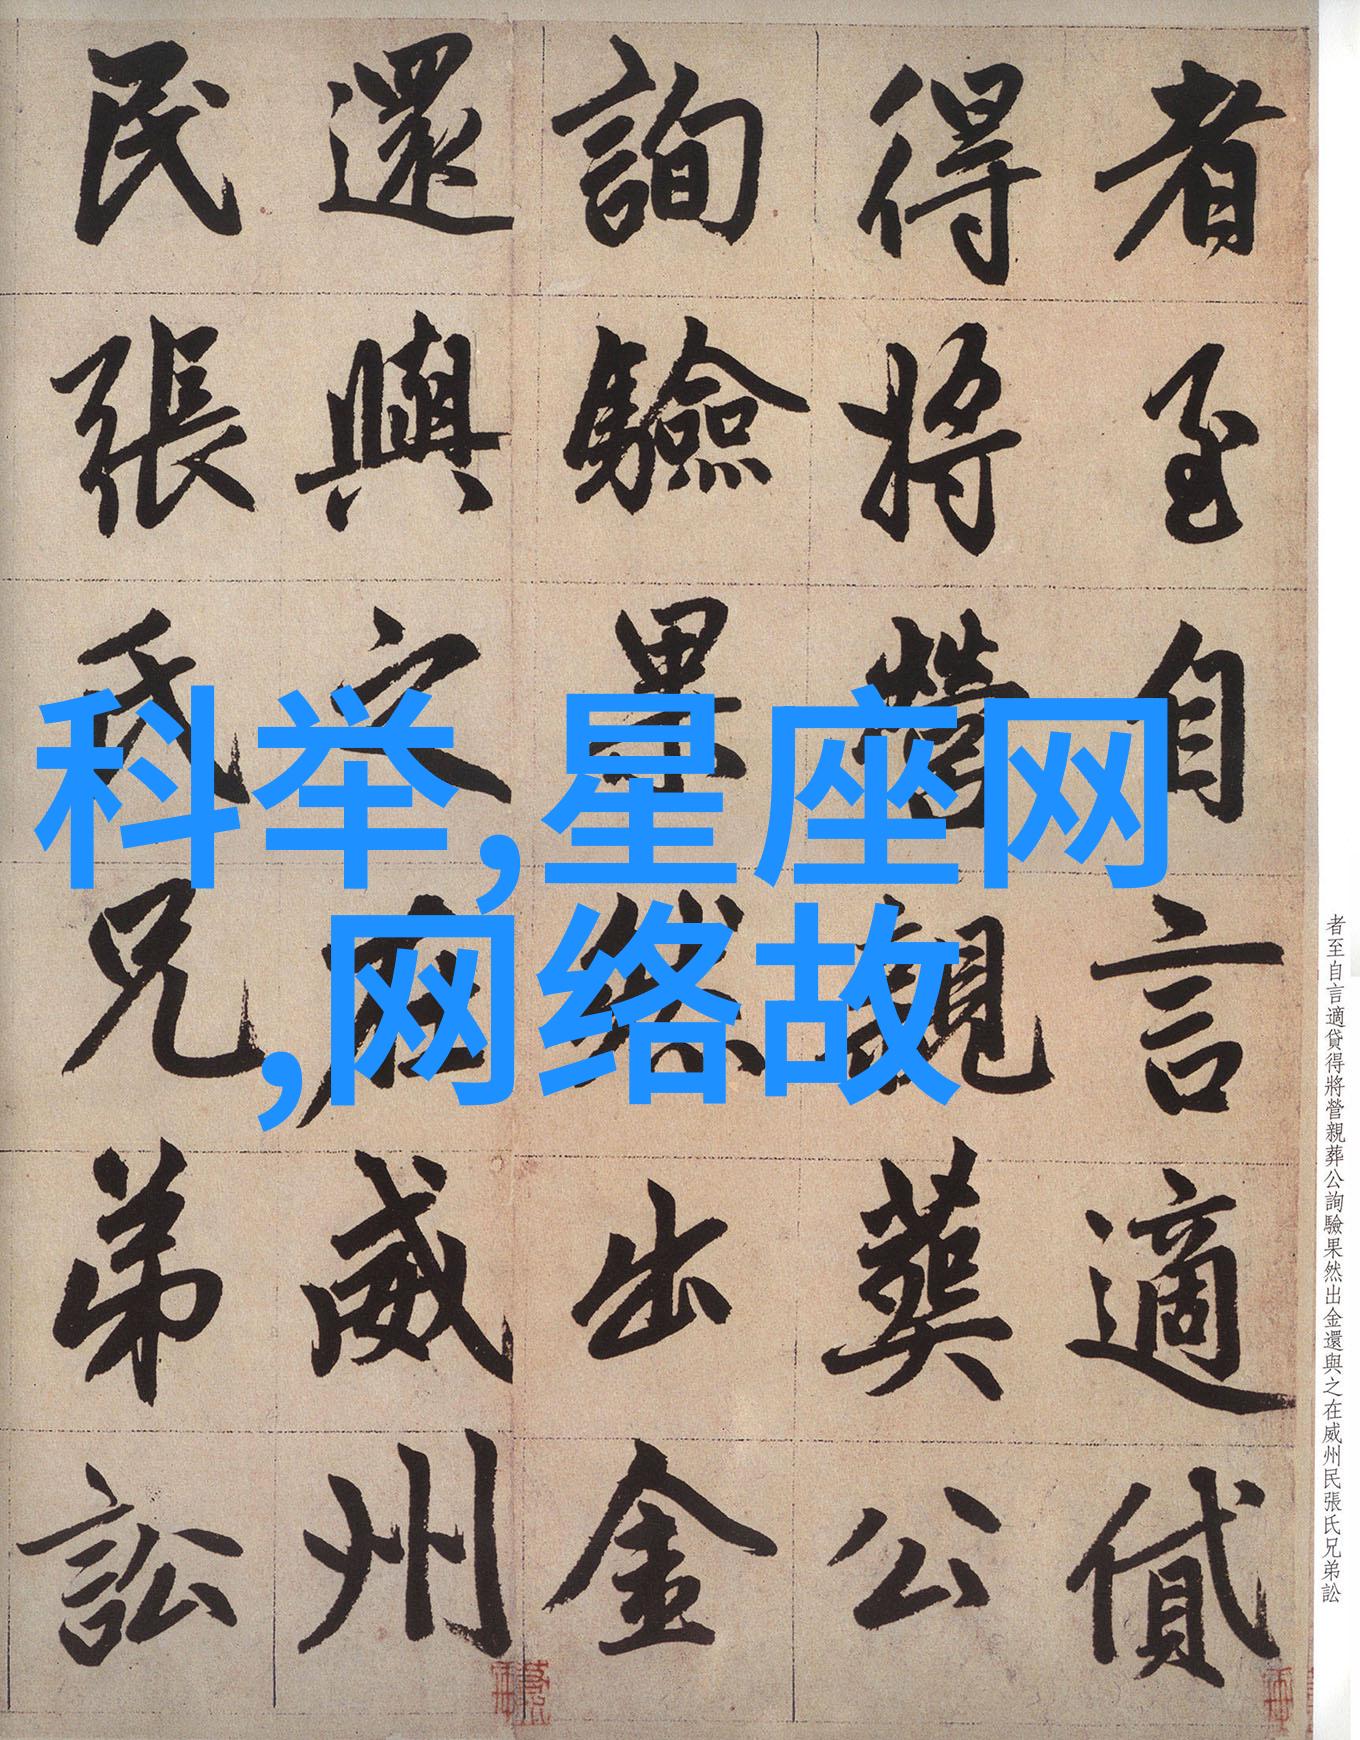 者至自言適貸
得將營親葬公
詢驗果然出金
還與之在威州
民張氏兄弟訟
科举,星座网
,网络故
者至自言適貸得將營親葬公詢驗果然出金還與之在威州民張氏兄弟訟